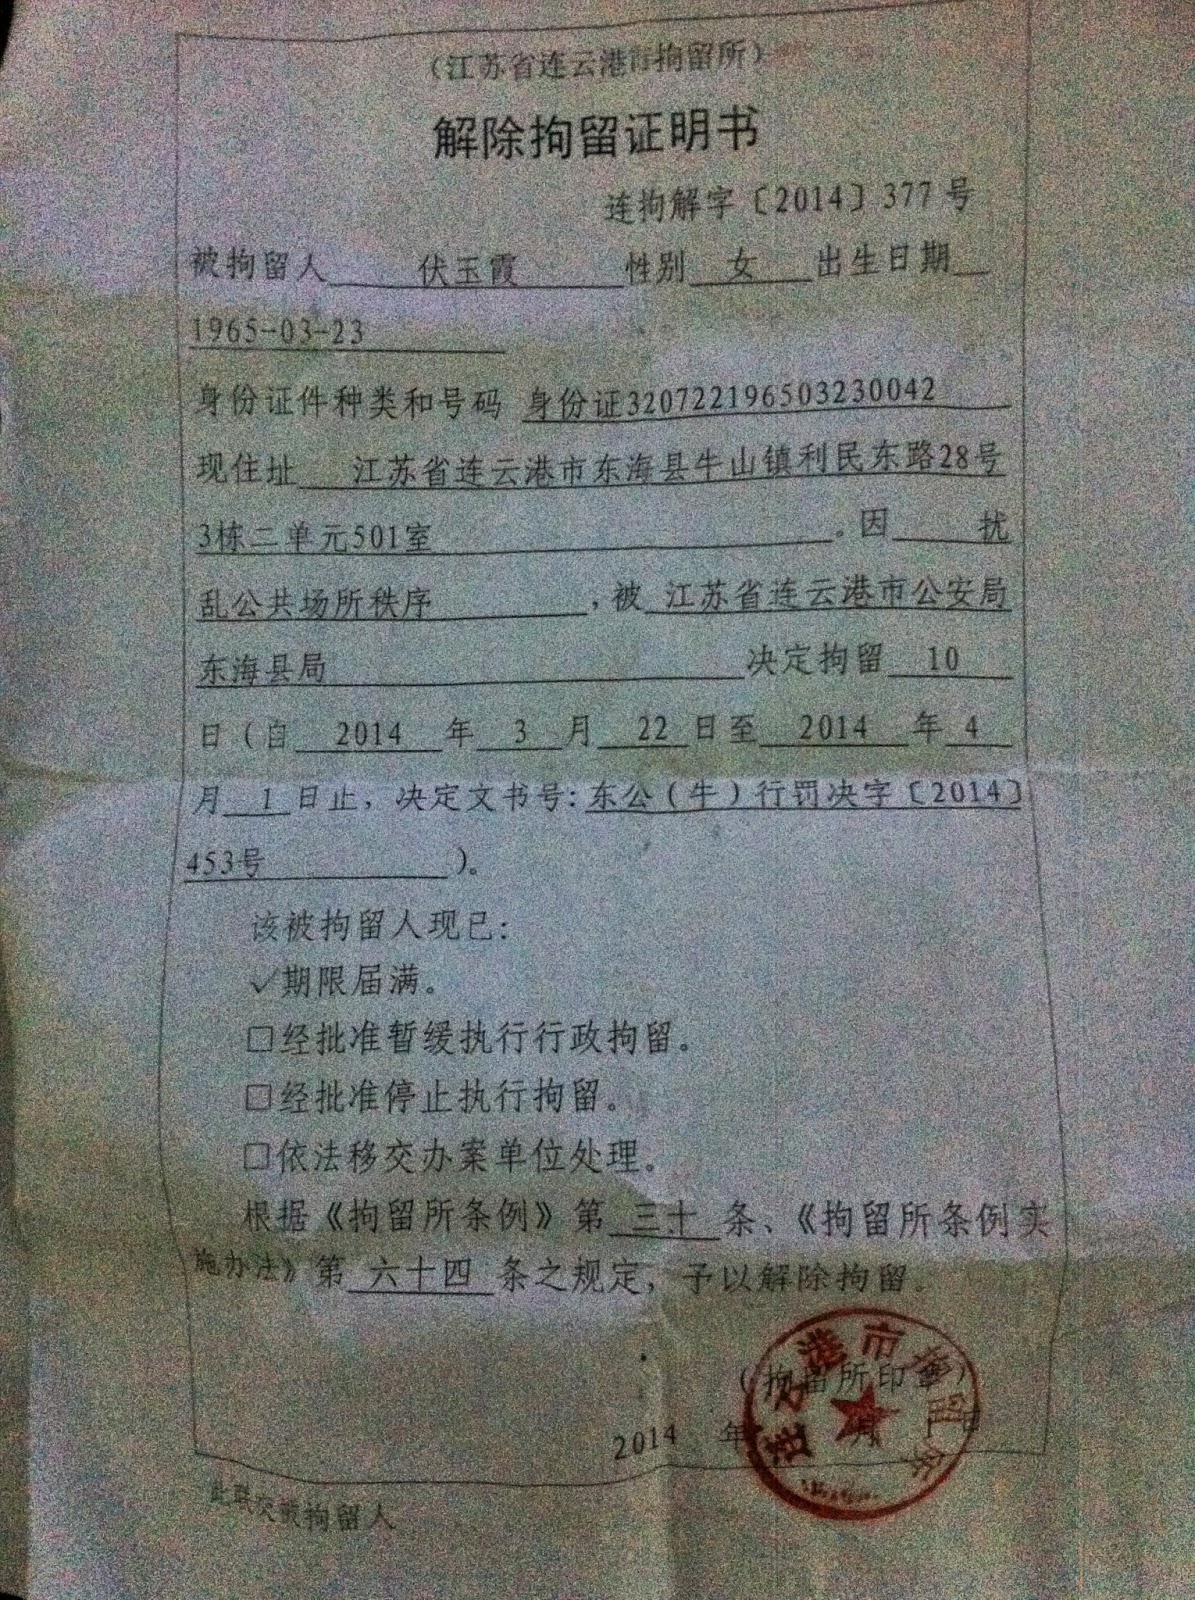 （江苏省连云港市拘留所）
解除拘留证明书
连拘解字〔2014〕377号
被拘留人 伏玉霞 性别 女 出生日期
1965-03-23
身份证件种类和号码 身份证320722196503230042
现住址 江苏省连云港市东海县牛山镇利民东路28号
3栋二单元501室 。因 扰
乱公共场所秩序 ，被 江苏省连云港市公安局
东海县局 决定拘留 10
日（自 2014 年 3 月 22 日至 2014 年 4
月 1 日止，决定文书号：东公（牛）行罚决字〔2014〕
453号 ）。
该被拘留人现已：
✓期限届满。
□经批准暂缓执行行政拘留。
□经批准停止执行拘留。
□依法移交办案单位处理。
根据《拘留所条例》第 三十 条、《拘留所条例实
施办法》第 六十四 条之规定，予以解除拘留。
（拘留所印章）
2014 年 月 日
连云港市拘留所
此联交被拘留人